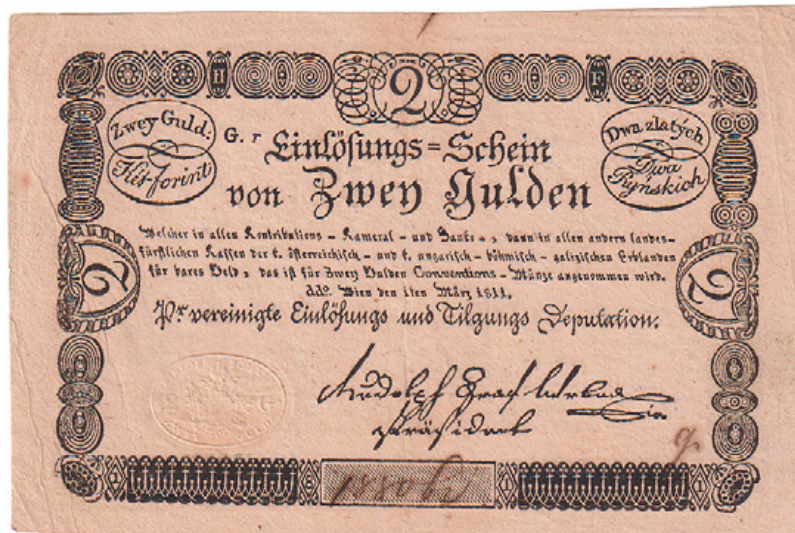 2
Zwey Guld:
Két forint
Dwa zlatých
Dwa
Ryńskich
G. r Einlösungs=Schein
von Zwey Gulden
Welcher in allen Contributions - Kameral - und Banko - , dann in allen andern landes-
fürstlichen Kassen der k. österreichisch - und k. ungarisch - böhmisch - galizischen Erblanden
für bares Geld , das ist für Zwey Gulden Conventions - Münze angenommen wird.
ddo. Wien den 1ten März 1811.
Pr. vereinigte Einlösungs und Tilgungs Deputation.
2
2
Rudolph Graf
Präsident